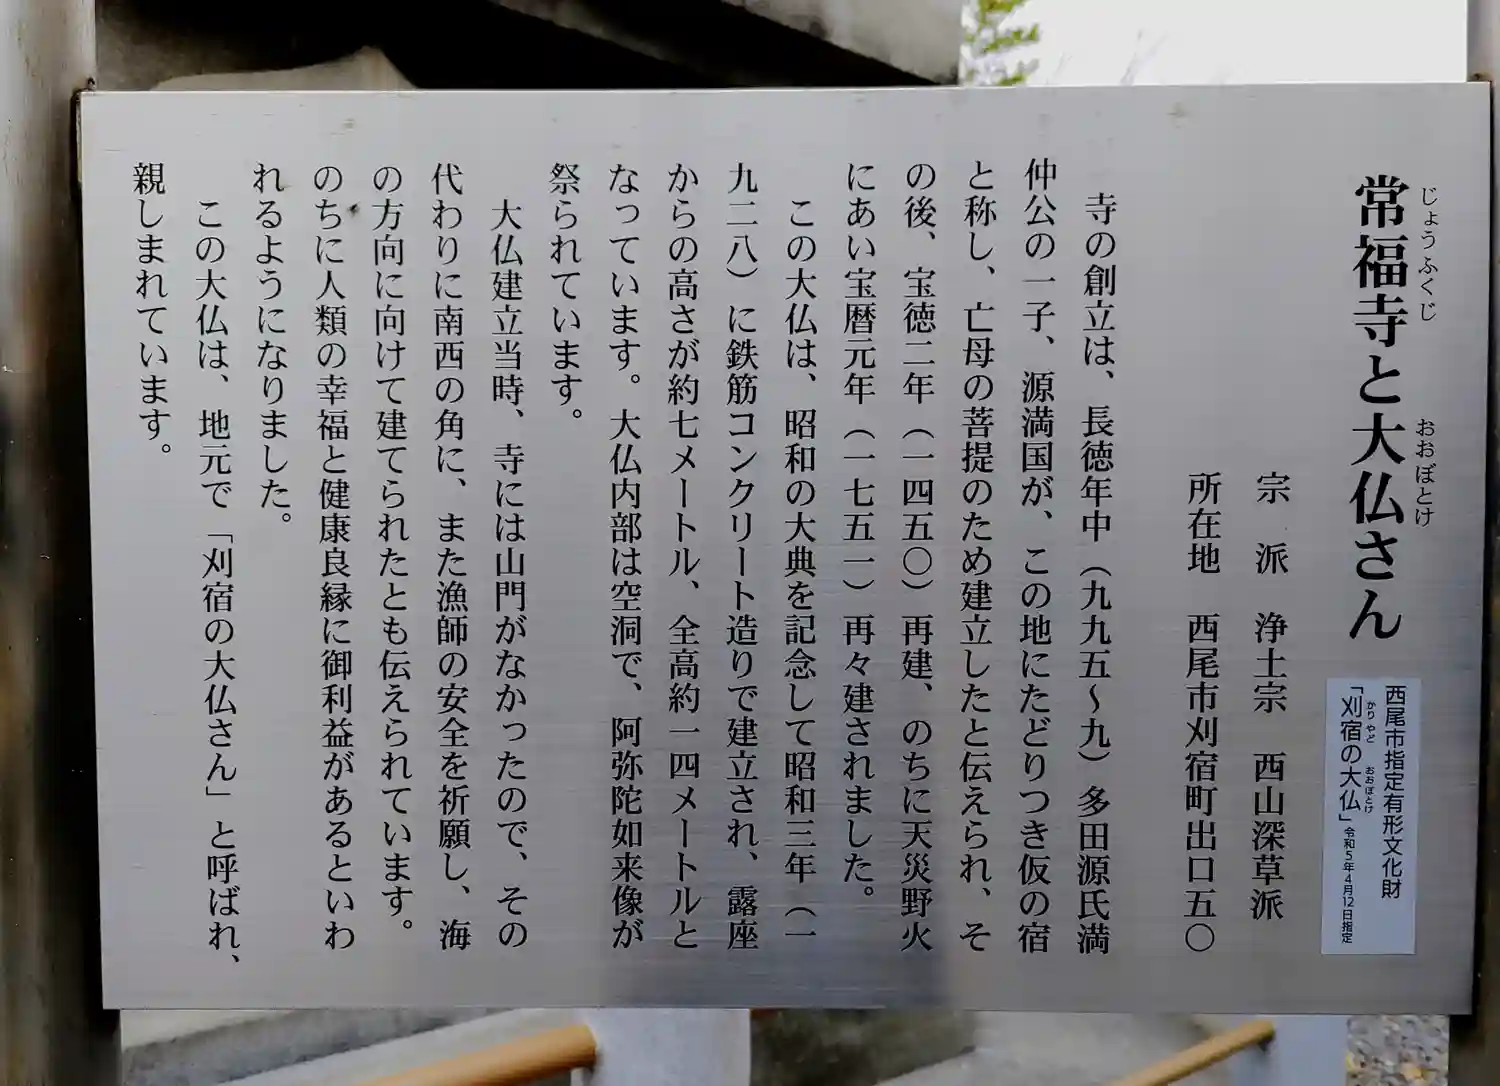 常福寺と大仏さん
じょうふくじ
おおぼとけ
西尾市指定有形文化財
「刈宿の大仏」令和5年4月12日指定
かりやど
おおぼとけ
宗　派　浄土宗　西山深草派
所在地　西尾市刈宿町出口五〇
寺の創立は、長徳年中（九九五～九）多田源氏満
仲公の一子、源満国が、この地にたどりつき仮の宿
と称し、亡母の菩提のため建立したと伝えられ、そ
の後、宝徳二年（一四五〇）再建、のちに天災野火
にあい宝暦元年（一七五一）再々建されました。
この大仏は、昭和の大典を記念して昭和三年（一
九二八）に鉄筋コンクリート造りで建立され、露座
からの高さが約七メートル、全高約一四メートルと
なっています。大仏内部は空洞で、阿弥陀如来像が
祭られています。
大仏建立当時、寺には山門がなかったので、その
代わりに南西の角に、また漁師の安全を祈願し、海
の方向に向けて建てられたとも伝えられています。
のちに人類の幸福と健康良縁に御利益があるといわ
れるようになりました。
この大仏は、地元で「刈宿の大仏さん」と呼ばれ、
親しまれています。